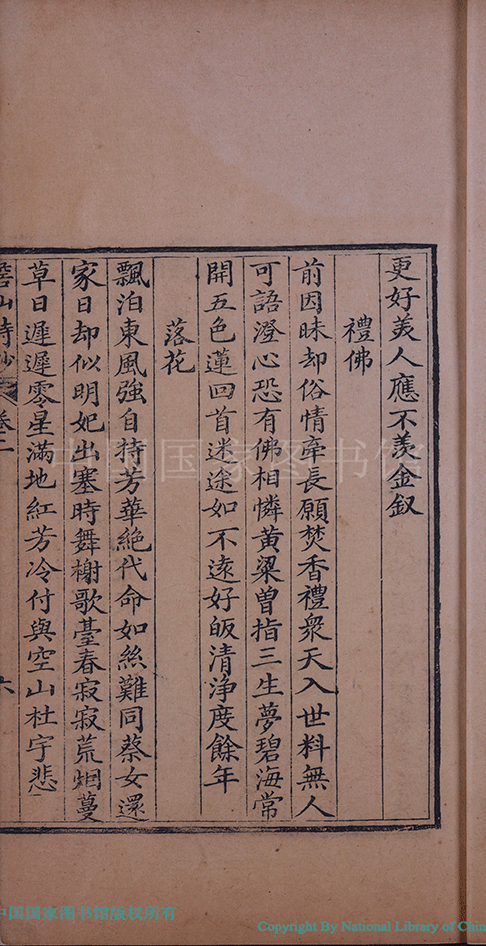 更好美人應不羨金釵
禮佛
前因昧却俗情牽長願焚香禮衆天入世料無人
可語澄心恐有佛相憐黄粱曾指三生夢碧海常
開五色蓮回首迷途如不遠好皈清浄度餘年
落花
飄泊東風強自持芳華絶代命如絲難同蔡女還
家日却似明妃出塞時舞榭歌臺春寂寂荒烟蔓
草日遲遲零星滿地紅芳冷付與空山杜宇悲
山詩鈔
卷二
六
中国国家图书馆
中国国家图书馆版权所有
Copyright By National Library of Chin